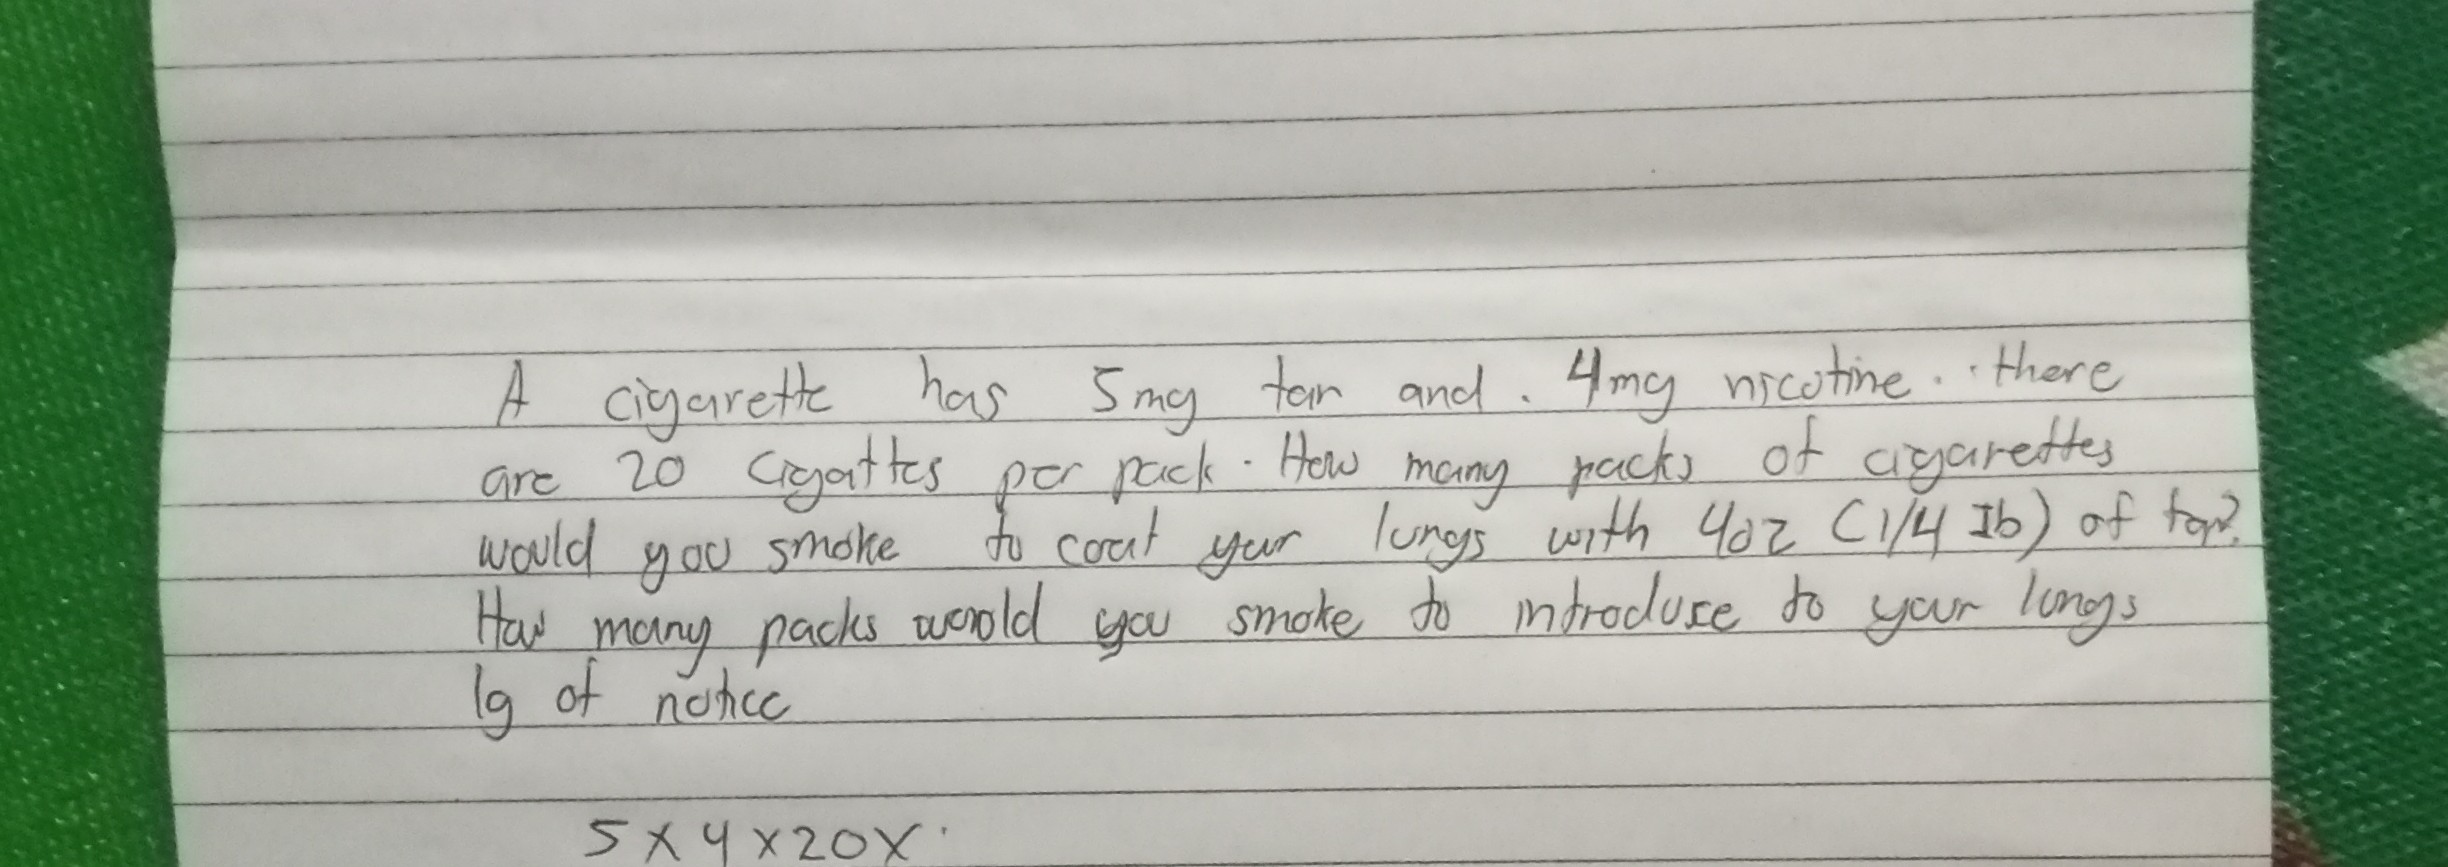 A cigarette has 5mg tar and . 4mg nicotine. there
are 20 Cigattes per pack. How many packs of cigarettes
would you smoke to coat your lungs with 4oz (1/4 Ib) of tar?
How many packs would you smoke to introduce to your lungs
1g of notice
5 x 4 x 20 x